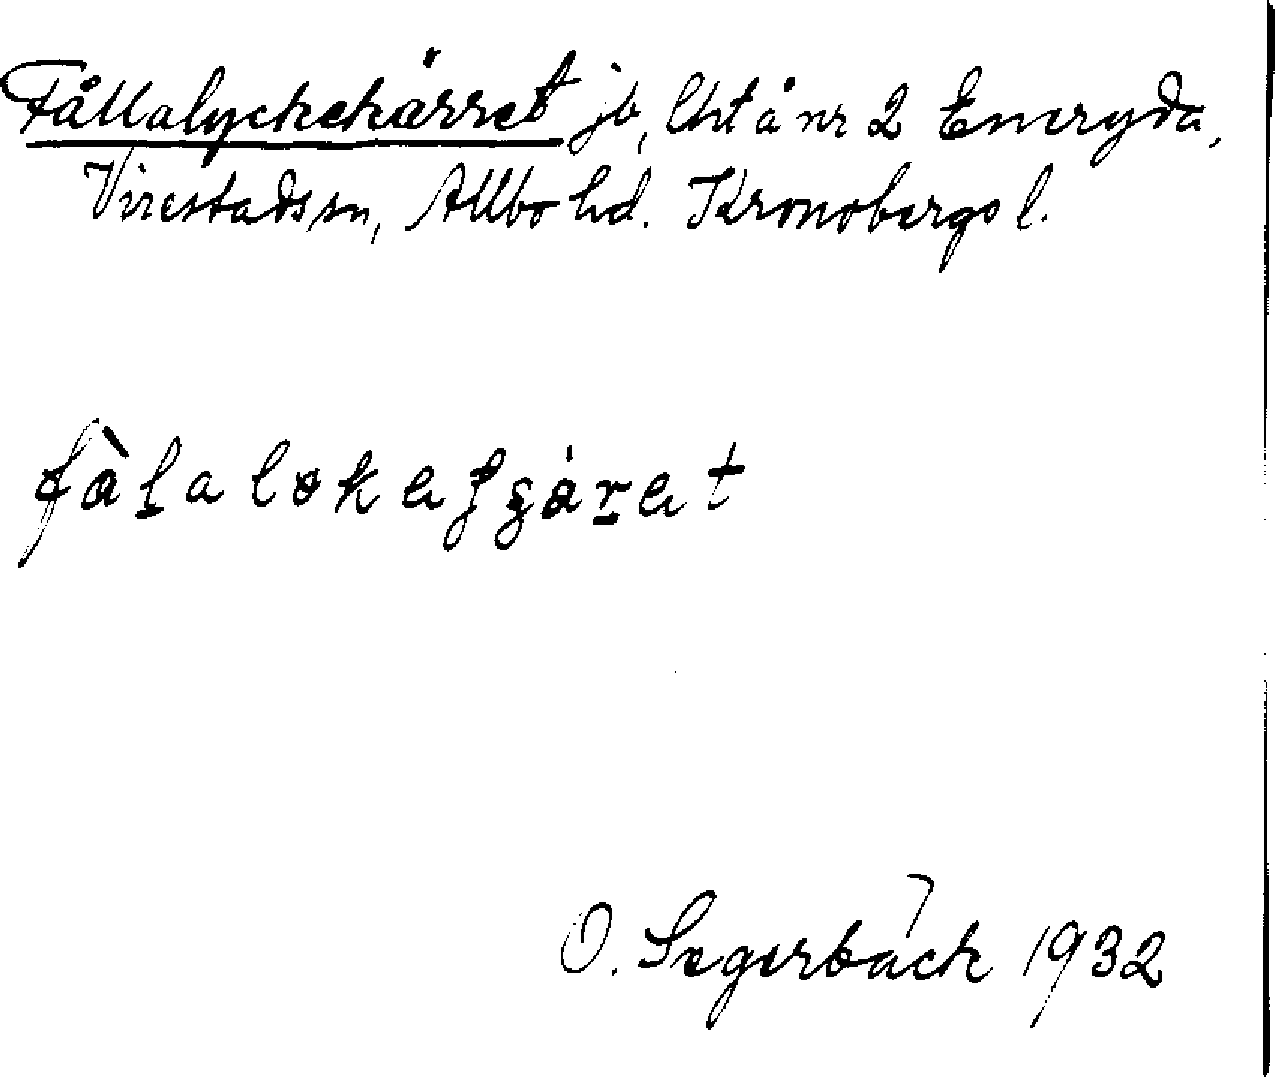 Fållalyckekärret jb, Cht å nr 2 Eneryda,
Virestads sn, Allbo hd. Kronobergs l.
fàlaløkeʃgäret
O. Segerbäck 1932